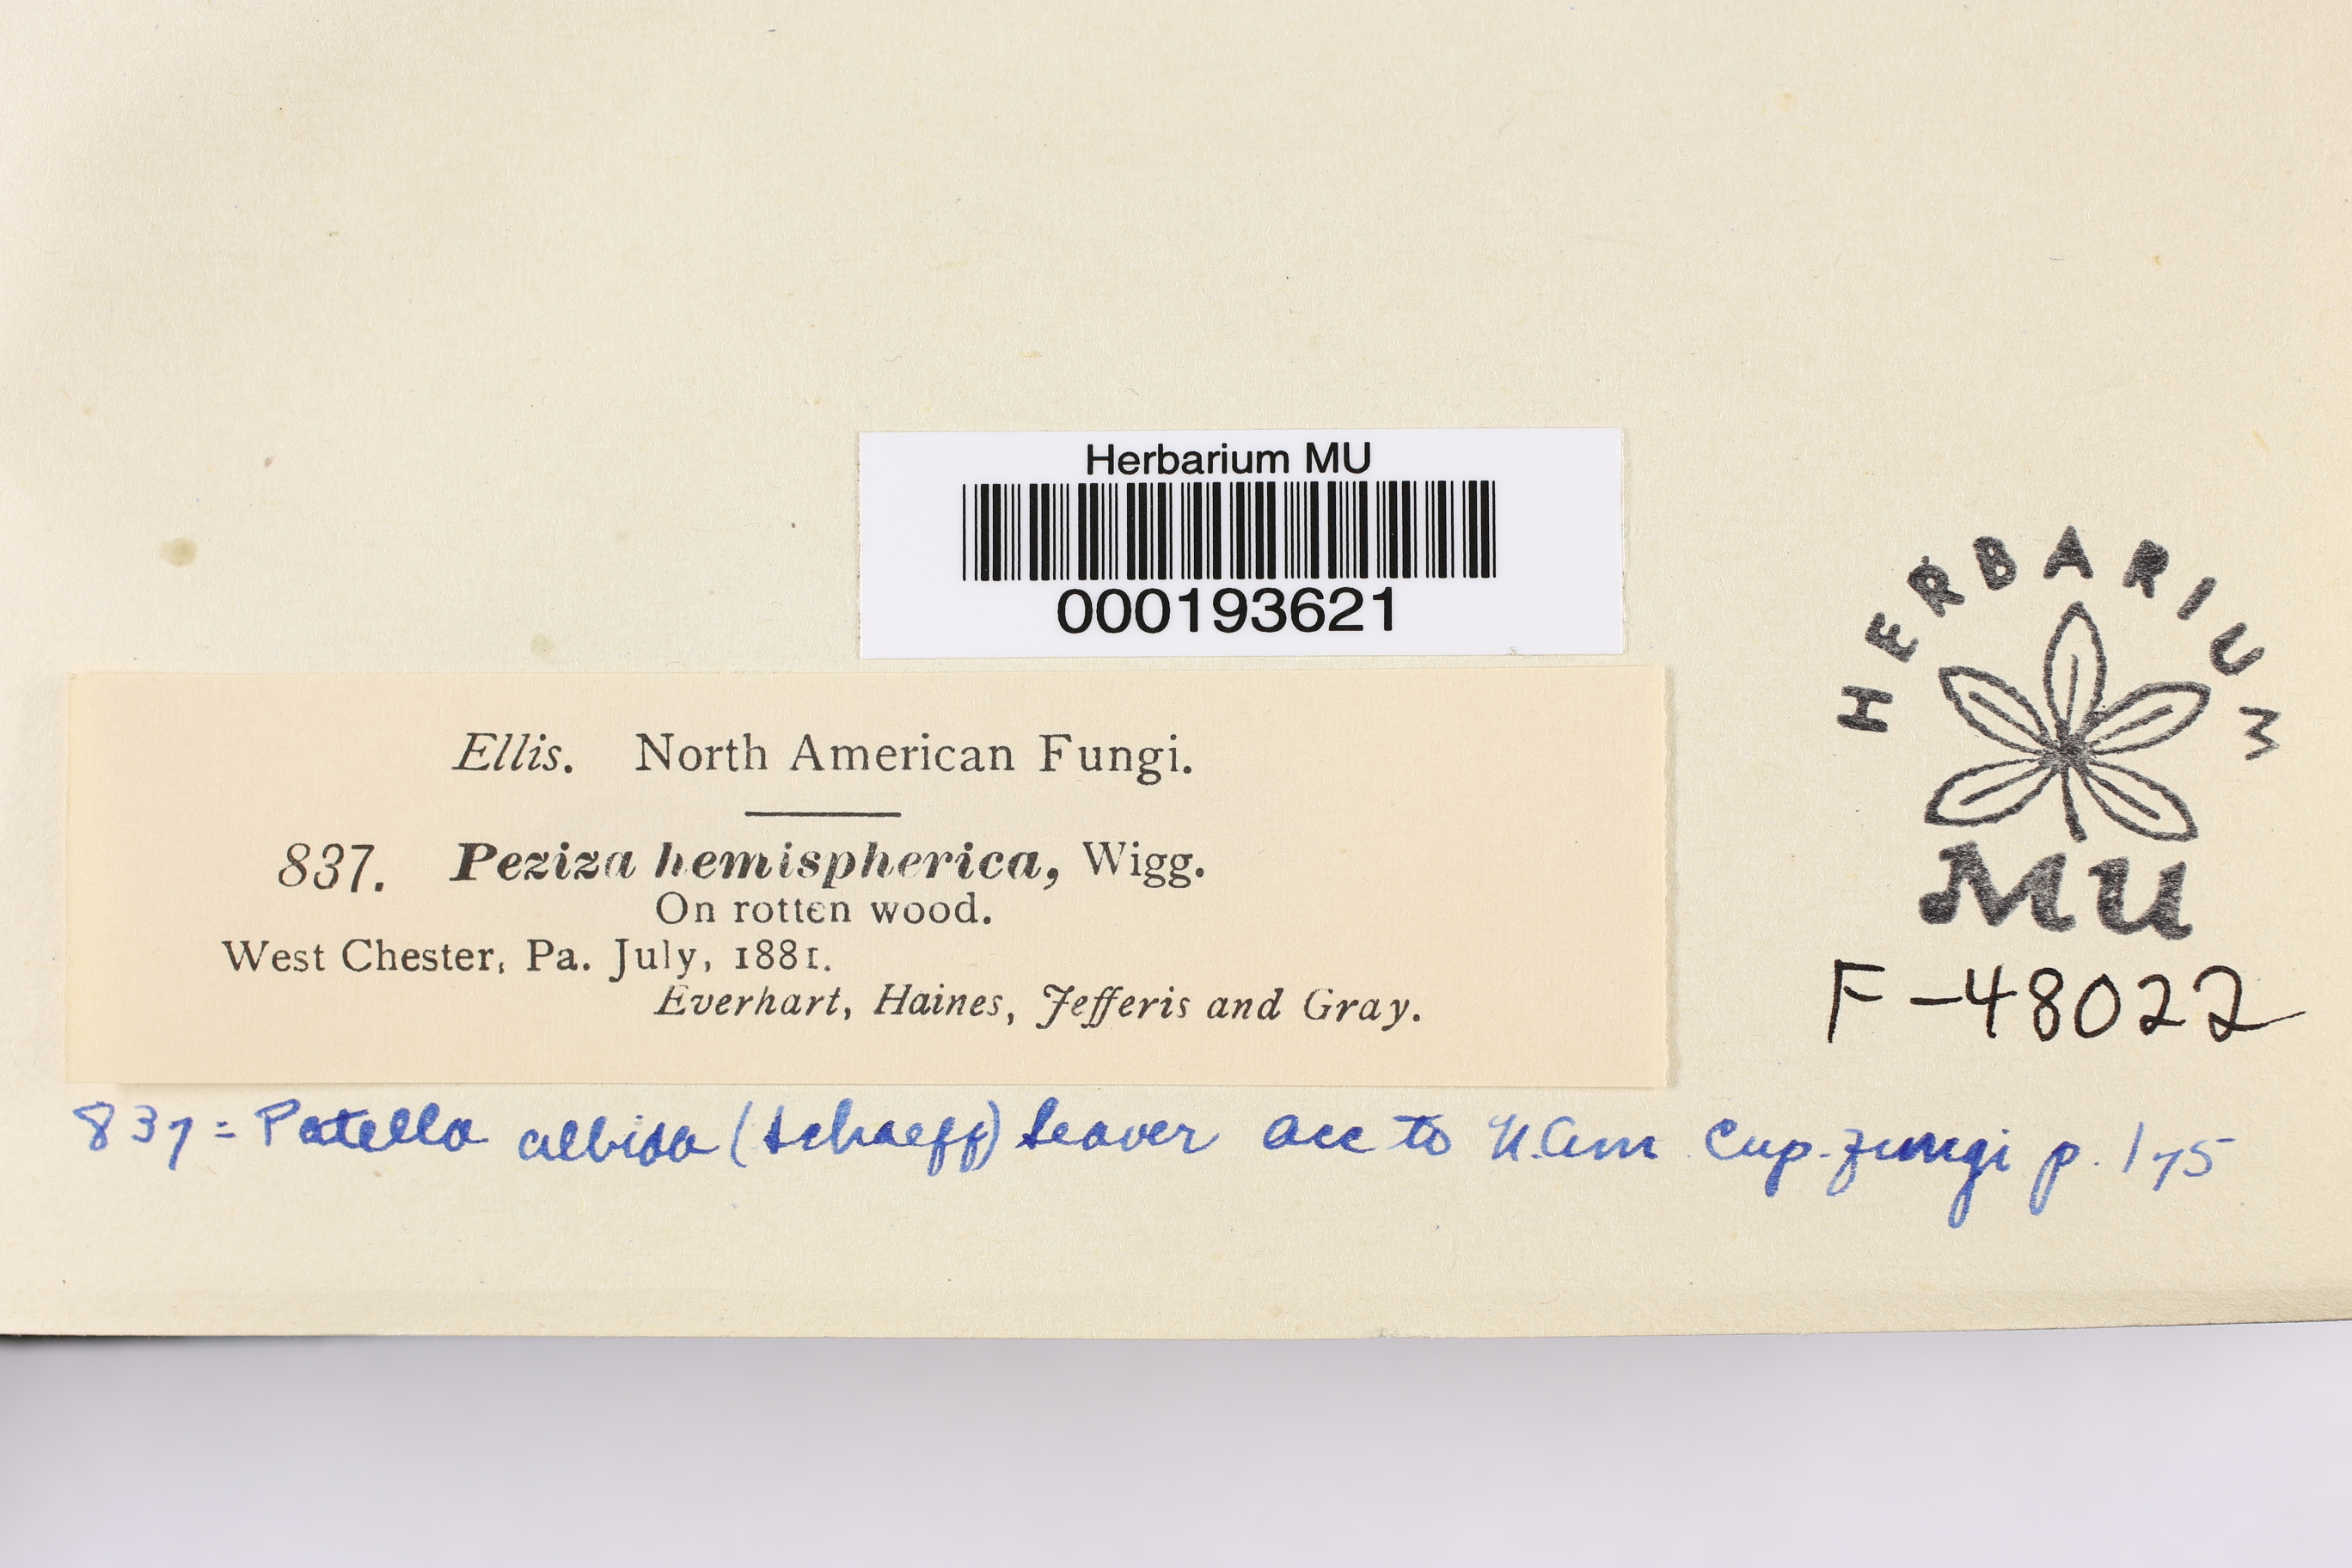 Herbarium MU
000193621
HERBARIUM
MU
F-48022
Ellis. North American Fungi.
837. Peziza hemispherica, Wigg.
On rotten wood.
West Chester, Pa. July, 1881.
Everhart, Haines, Jefferis and Gray.
837 = Patella albida (Schaeff) Seaver acc to N. Am. Cup-fungi p. 175